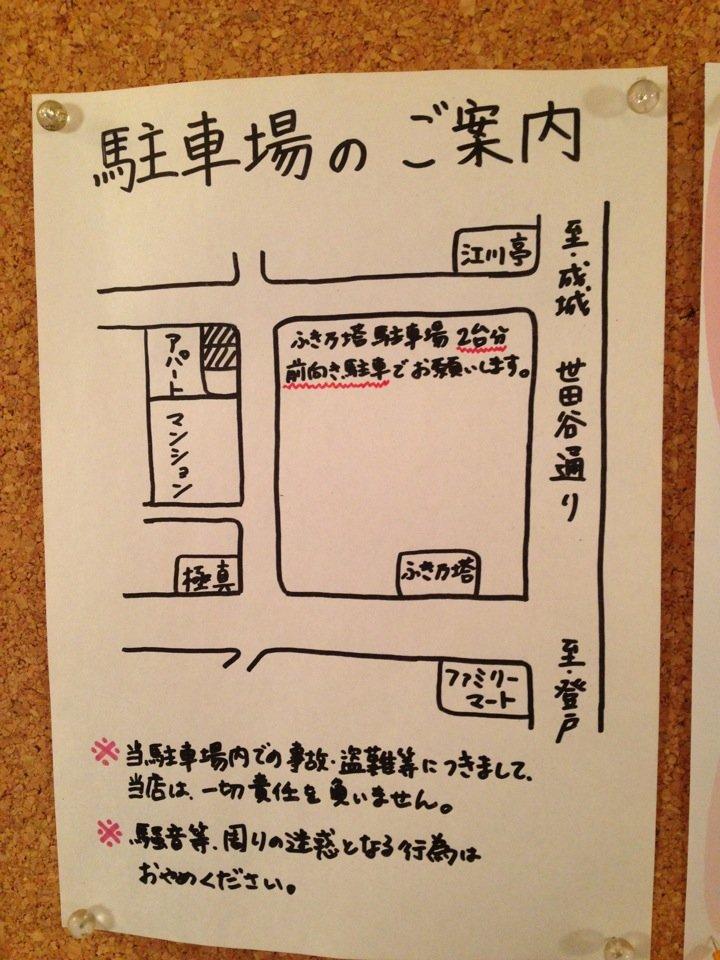 駐車場のご案内
江川亭
至・成城
世田谷通り
至・登戸
ふき乃塔 駐車場 2台分
前向き駐車でお願いします。
アパート
マンション
極真
ふき乃塔
ファミリー
マート
※ 当駐車場内での事故・盗難等につきまして、
当店は、一切責任を負いません。
※ 騒音等、周りの迷惑となる行為は
おやめください。